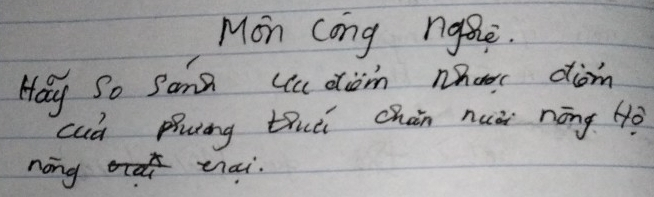 Môn Công nghệ.
Hãy so sánh ưu điểm nhược điểm
của phương thức chăn nuôi nông Hộ
nông trại.